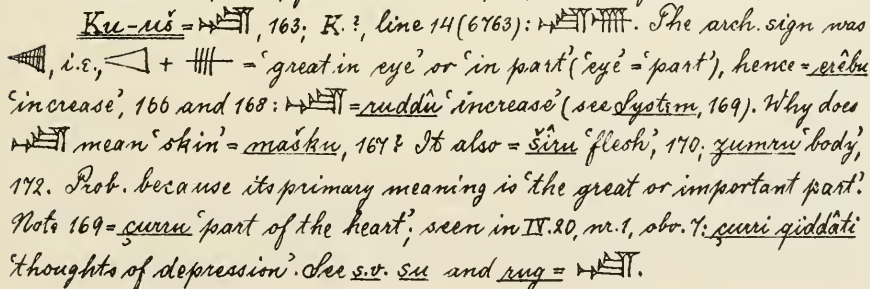 Ku-uš = 𒋢, 163; K.?, line 14 (6763): . The arch. sign was
, i.e., + = 'great in eye' or 'in part' ('eye' = 'part'), hence = erêbu
'increase', 166 and 168: 𒋢 = ruddû 'increase' (see System, 169). Why does
𒋢 mean 'skin' = mašku, 167? It also = šîru 'flesh', 170; zumru 'body',
172. Prob. because its primary meaning is 'the great or important part'.
Note 169 = çurru 'part of the heart', seen in IV. 20, nr. 1, obv. 7: çurri qiddâti
'thoughts of depression'. See s.v. su and rug = 𒋢.